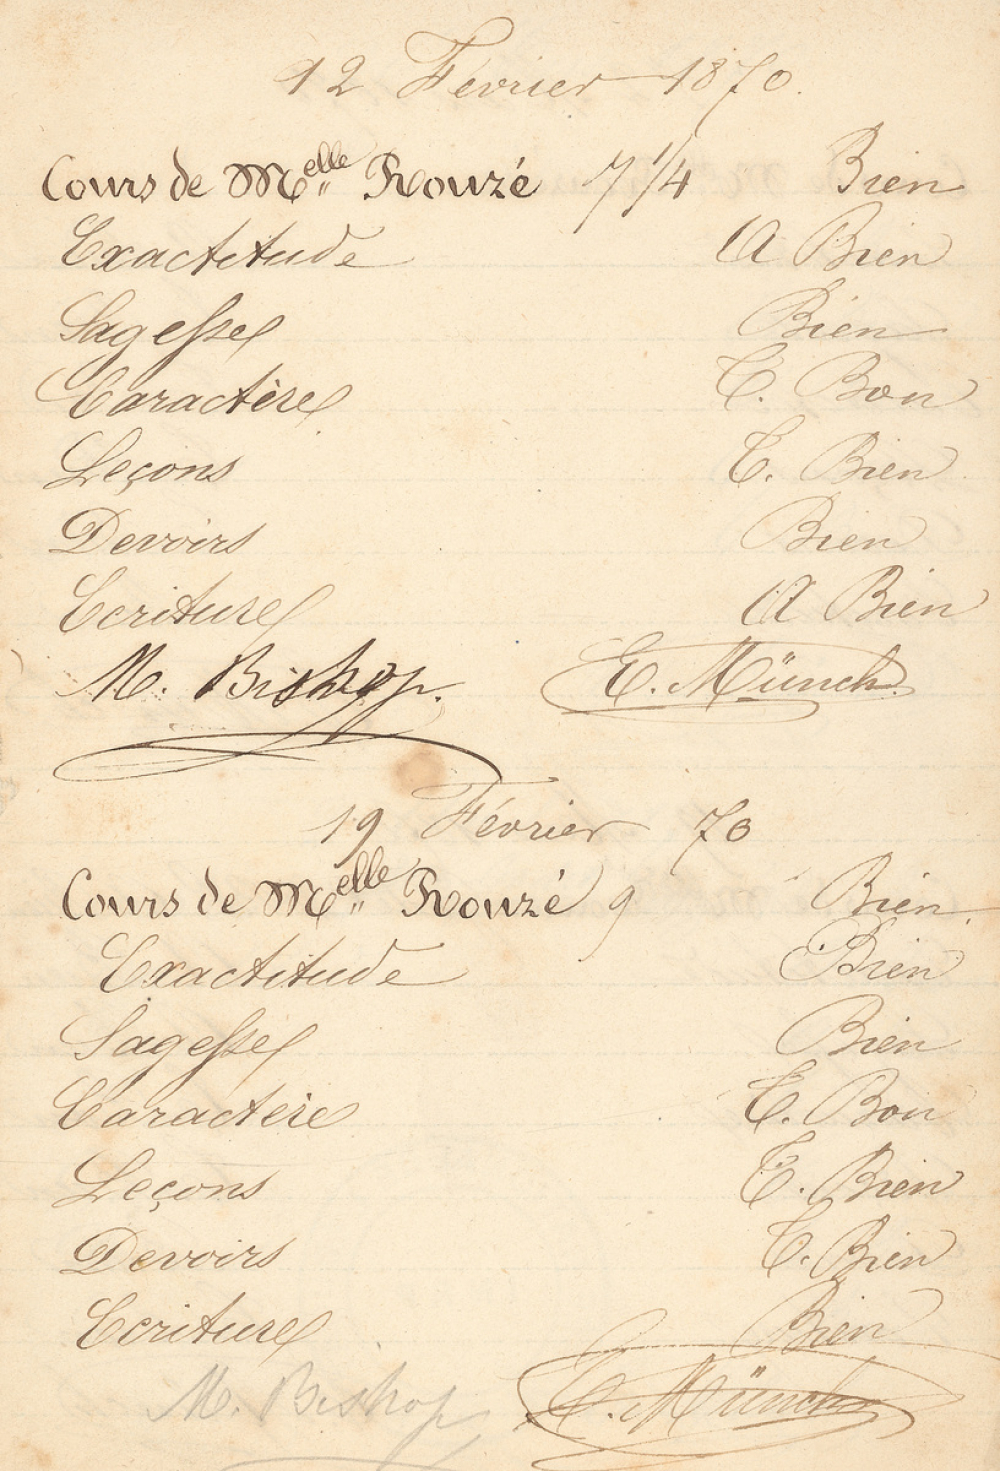 12 Février 1870.
Cours de Melle Rouzé 7 1/4 Bien
Exactitude A Bien
Sagesse Bien
Caractère T. Bon
Leçons T. Bien
Devoirs Bien
Ecriture A Bien
M. Bishop. E. Münch.
19 Février 70
Cours de Melle Rouzé 9 Bien.
Exactitude Bien
Sagesse Bien
Caractère T. Bon
Leçons T. Bien
Devoirs T. Bien
Ecriture Bien
M. Bishop E. Münch